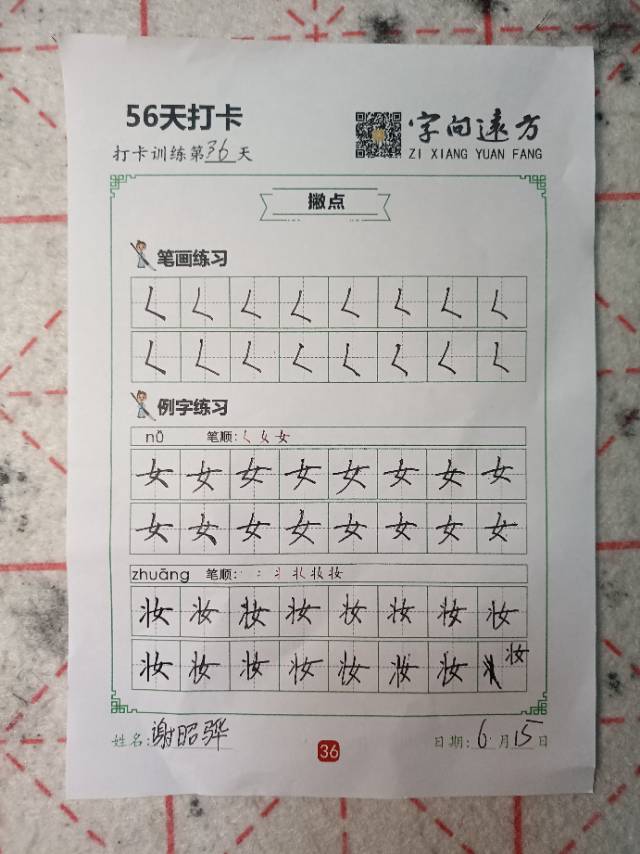 56天打卡
字向远方
打卡训练第36天
ZI XIANG YUAN FANG
撇点
笔画练习
𡿨 𡿨 𡿨 𡿨 𡿨 𡿨 𡿨 𡿨
𡿨 𡿨 𡿨 𡿨 𡿨 𡿨 𡿨 𡿨
例字练习
nǚ 笔顺:𡿨 女 女
女 女 女 女 女 女 女 女
女 女 女 女 女 女 女 女
zhuāng 笔顺:丶 冫 丬 丬 妆 妆
妆 妆 妆 妆 妆 妆 妆 妆
妆 妆 妆 妆 妆 妆 妆 妆
姓名:谢昭骅 36 日期:6月15日